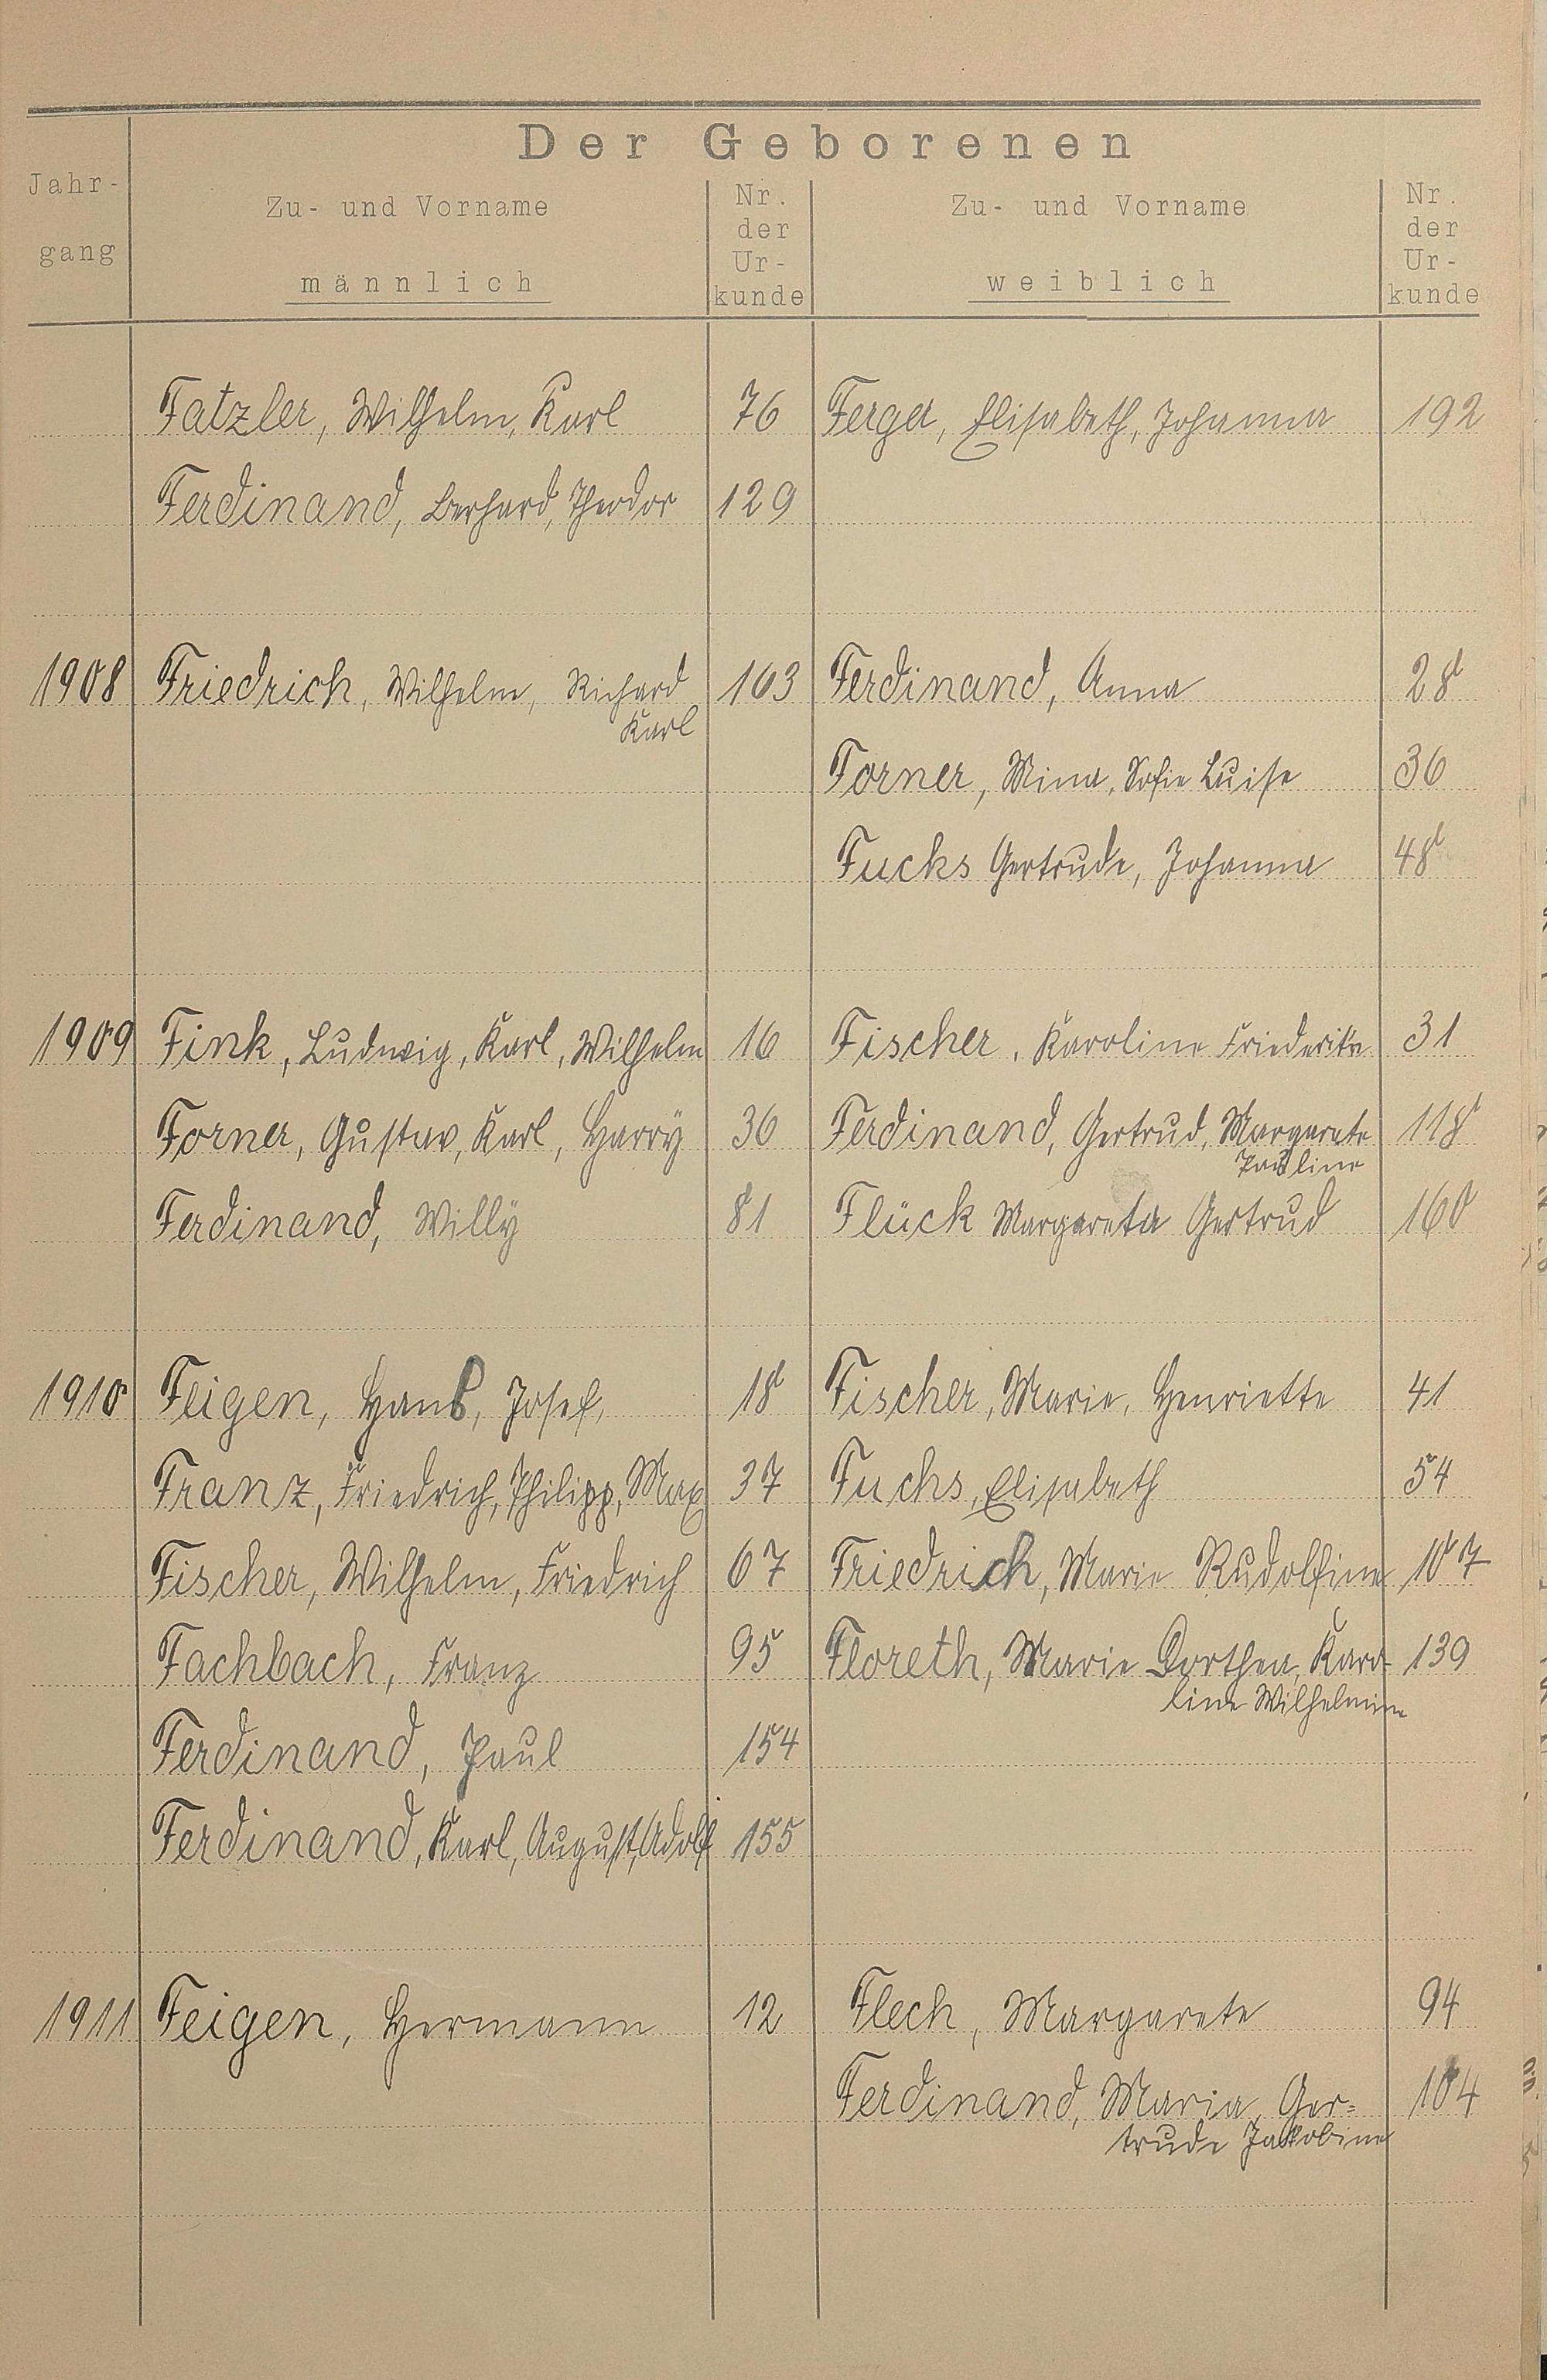 Der Geborenen
Jahr-
gang
Zu- und Vorname
männlich
Nr.
der
Ur-
kunde
Zu- und Vorname
weiblich
Nr.
der
Ur-
kunde
Fatzler, Wilhelm, Karl 76 Ferger, Elisabeth, Johanna 192
Ferdinand, Berhard, Theodor 129
1908 Friedrich, Wilhelm, Richard 103 Ferdinand, Anna 28
Karl
Forner, Mina, Sofie Luise 36
Fucks Gertrude, Johanna 48
1909 Fink, Ludwig, Karl, Wilhelm 16 Fischer, Karoline Friederike 31
Forner, Gustav, Karl, Harry 36 Ferdinand, Gertrud, Margarete 118
Pauline
Ferdinand, Willy 81 Flück Margareta Gertrud 160
1910 Feigen, Hans, Josef, 18 Fischer, Marie, Henriette 41
Franz, Friedrich, Philipp, Max 37 Fuchs, Elisabeth 54
Fischer, Wilhelm, Friedrich 67 Friedrich, Marie Rudolfine 107
Fachbach, Franz 95 Floreth, Marie Dorthea, Karo- 139
line Wilhelmine
Ferdinand, Paul 154
Ferdinand, Karl, August, Adolf 155
1911 Feigen, Hermann 12 Flech, Margarete 94
Ferdinand, Maria, Ger= 104
trude Jakobine